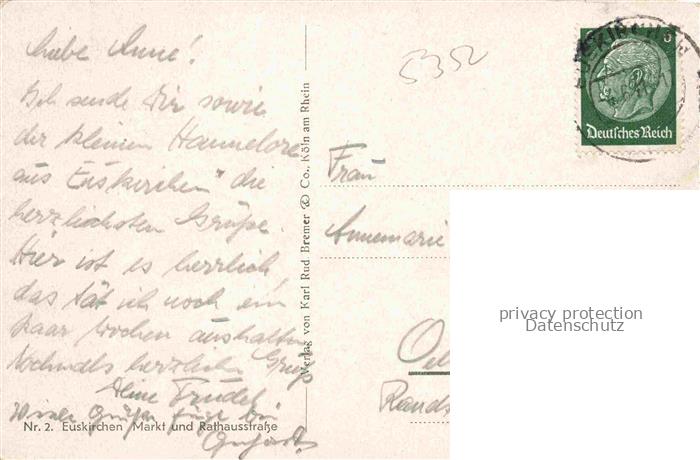 Liebe Anne!
Ich sende Dir sowie
der kleinen Hannelore
aus Euskirchen" die
herzlichsten Grüße.
Hier ist es herrlich,
das tät ich noch ein
paar Wochen aushalten
Nochmals herzlichen Gruß
Deine Trudel
Viele Grüße füge bei
Nr. 2. Euskirchen Markt und Rathausstraße
Verlag von Karl Rud Bremer & Co., Köln am Rhein
5352
EUSKIRCHEN
Deutsches Reich
Frau
Annemarie
Rands
privacy protection
Datenschutz